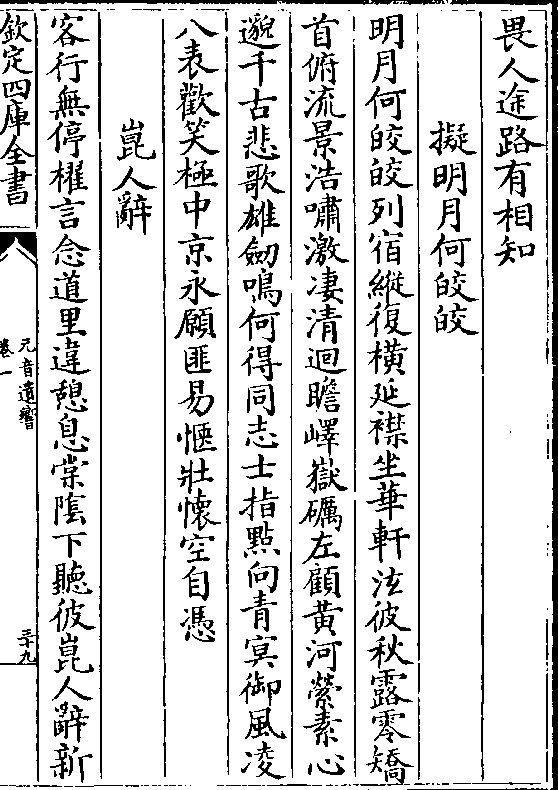 畏人途路有相知
擬明月何皎皎
明月何皎皎列宿縱復横延襟坐華軒泫彼秋露零矯
首俯流景浩嘯激凄清迴瞻嶧嶽礪左顧黄河縈素心
邈千古悲歌雄劒鳴何得同志士指點向青冥御風凌
八表歡笑極中京永願匪易愜壯懷空自慿
崑人辭
客行無停櫂言念道里違憩息棠陰下聽彼崑人辭新
欽定四庫全書
元音遺響
卷一
三十九